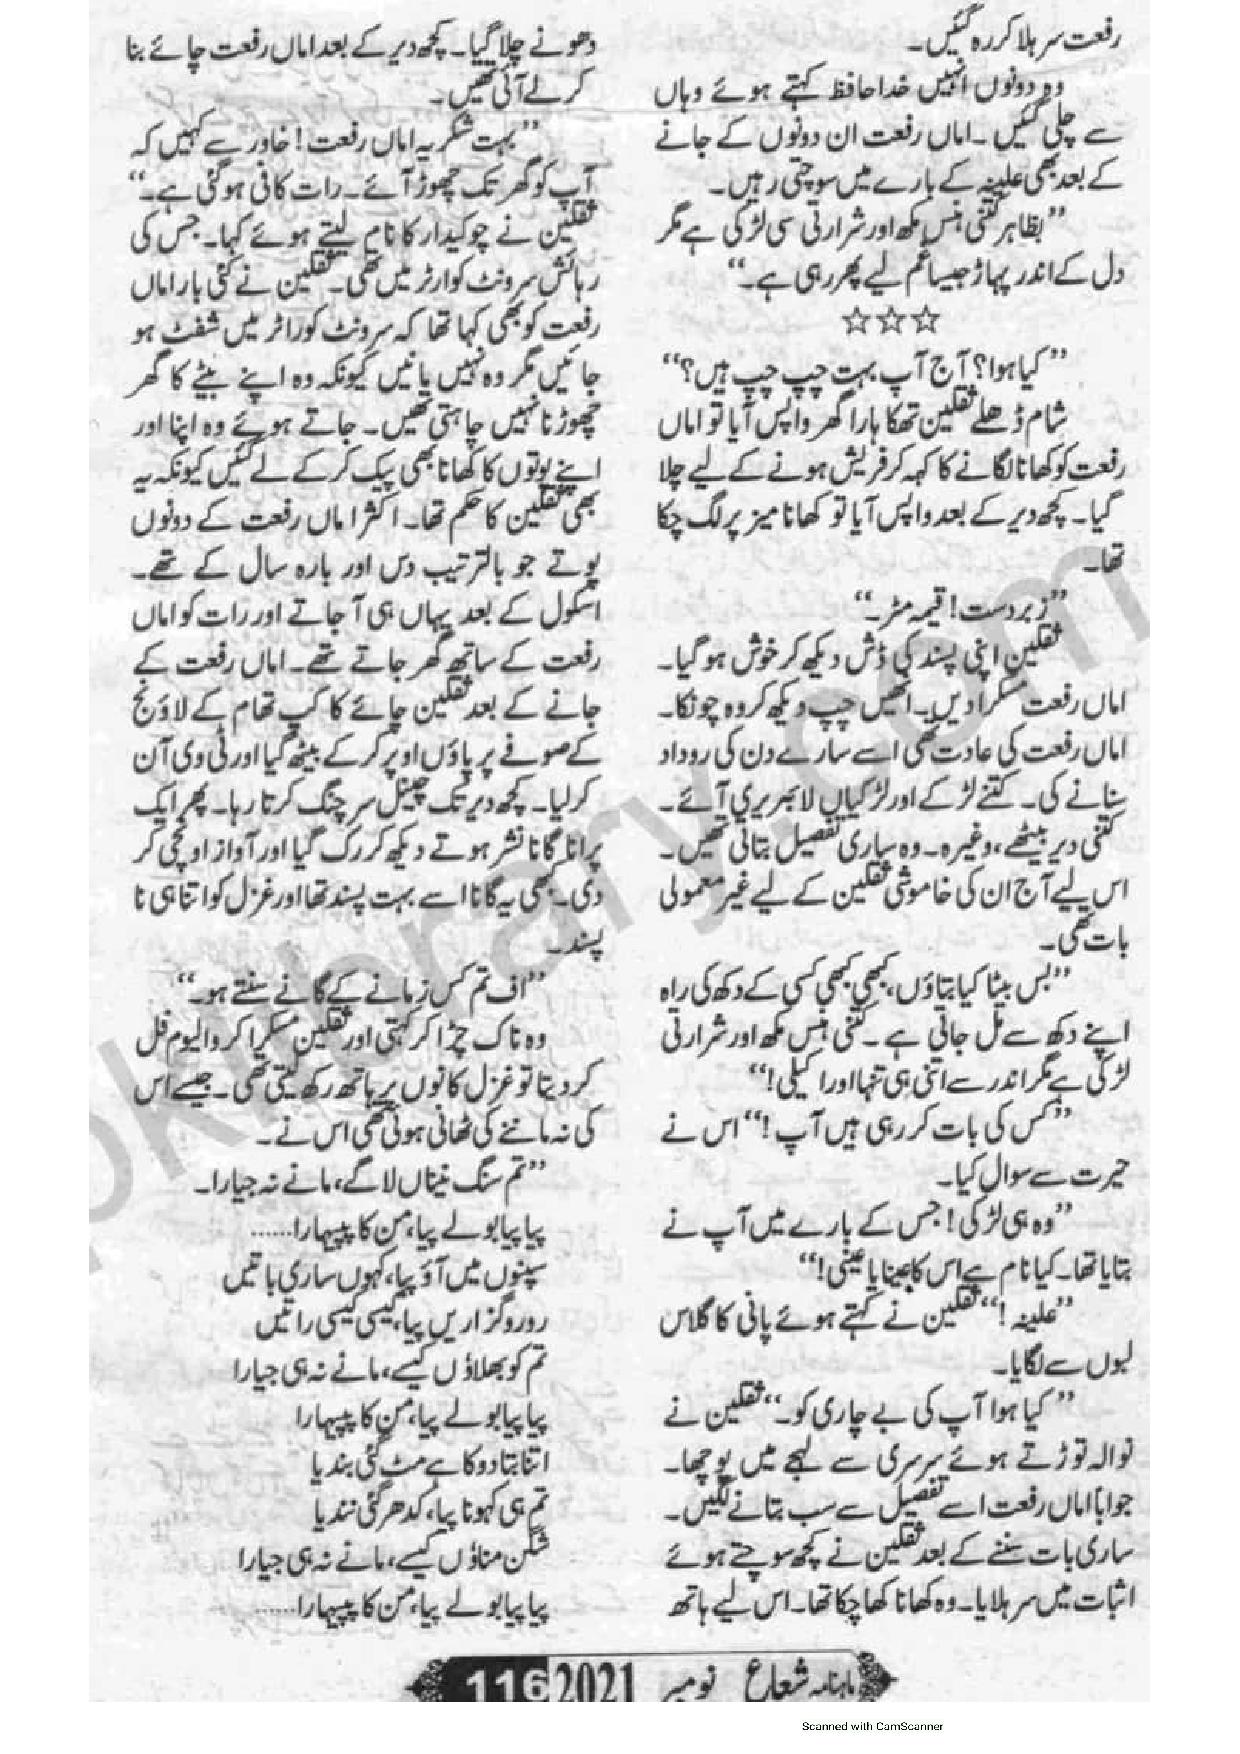 رفعت سر ہلا کر رہ گئیں۔
وہ دونوں انہیں خدا حافظ کہتے ہوئے وہاں
سے چلی گئیں۔ اماں رفعت ان دونوں کے جانے
کے بعد بھی علینہ کے بارے میں سوچتی رہیں۔
”بظاہر کتنی ہنس مکھ اور شرارتی سی لڑکی ہے مگر
دل کے اندر پہاڑ جیسا غم لیے پھر رہی ہے۔“
☆☆☆
”کیا ہوا؟ آج آپ بہت چپ چپ ہیں؟“
شام ڈھلے ثقلین تھکا ہارا گھر واپس آیا تو اماں
رفعت کو کھانا لگانے کا کہہ کر فریش ہونے کے لیے چلا
گیا۔ کچھ دیر کے بعد واپس آیا تو کھانا میز پر لگ چکا
تھا۔
”زبردست! قیمہ مٹر۔“
ثقلین اپنی پسند کی ڈش دیکھ کر خوش ہو گیا۔
اماں رفعت مسکرا دیں۔ انھیں چپ دیکھ کر وہ چونکا۔
اماں رفعت کی عادت تھی اسے سارے دن کی روداد
سنانے کی۔ کتنے لڑکے اور لڑکیاں لائبریری آئے۔
کتنی دیر بیٹھے، وغیرہ۔ وہ ساری تفصیل بتاتی تھیں۔
اس لیے آج ان کی خاموشی ثقلین کے لیے غیر معمولی
بات تھی۔
”بس بیٹا کیا بتاؤں، کبھی کبھی کسی کے دکھ کی راہ
اپنے دکھ سے مل جاتی ہے۔ کتنی ہنس مکھ اور شرارتی
لڑکی ہے مگر اندر سے اتنی ہی تنہا اور اکیلی!“
”کس کی بات کر رہی ہیں آپ!“ اس نے
حیرت سے سوال کیا۔
”وہ ہی لڑکی! جس کے بارے میں آپ نے
بتایا تھا۔ کیا نام ہے اس کا عینا یا عینی!“
”علینہ!“ ثقلین نے کہتے ہوئے پانی کا گلاس
لبوں سے لگایا۔
”کیا ہوا آپ کی بے چاری کو۔“ ثقلین نے
نوالہ توڑتے ہوئے سرسری سے لہجے میں پوچھا۔
جواباً اماں رفعت اسے تفصیل سے سب بتانے لگیں۔
ساری بات سننے کے بعد ثقلین نے کچھ سوچتے ہوئے
اثبات میں سر ہلایا۔ وہ کھانا کھا چکا تھا۔ اس لیے ہاتھ
دھونے چلا گیا۔ کچھ دیر کے بعد اماں رفعت چائے بنا
کر لے آئی تھیں۔
”بہت شکریہ اماں رفعت! خاور سے کہیں کہ
آپ کو گھر تک چھوڑ آئے۔ رات کافی ہو گئی ہے۔“
ثقلین نے چوکیدار کا نام لیتے ہوئے کہا۔ جس کی
رہائش سرونٹ کوارٹر میں تھی۔ ثقلین نے کئی بار اماں
رفعت کو بھی کہا تھا کہ سرونٹ کوراٹر میں شفٹ ہو
جائیں مگر وہ نہیں مانیں کیونکہ وہ اپنے بیٹے کا گھر
چھوڑنا نہیں چاہتی تھیں۔ جاتے ہوئے وہ اپنا اور
اپنے پوتوں کا کھانا بھی پیک کر کے لے گئیں کیونکہ یہ
بھی ثقلین کا حکم تھا۔ اکثر اماں رفعت کے دونوں
پوتے جو بالترتیب دس اور بارہ سال کے تھے۔
اسکول کے بعد یہاں ہی آ جاتے اور رات کو اماں
رفعت کے ساتھ گھر جاتے تھے۔ اماں رفعت کے
جانے کے بعد ثقلین چائے کا کپ تھام کے لاؤنج
کے صوفے پر پاؤں اوپر کر کے بیٹھ گیا اور ٹی وی آن
کر لیا۔ کچھ دیر تک چینل سرچنگ کرتا رہا۔ پھر ایک
پرانا گانا نشر ہوتے دیکھ کر رک گیا اور آواز اونچی کر
دی۔ کبھی یہ گانا اسے بہت پسند تھا اور غزل کو اتنا ہی نا
پسند۔
”اف تم کس زمانے کے گانے سنتے ہو۔“
وہ ناک چڑا کر کہتی اور ثقلین مسکرا کر والیوم فل
کر دیتا تو غزل کانوں پر ہاتھ رکھ لیتی تھی۔ جیسے اس
کی نہ ماننے کی ٹھانی ہوئی تھی اس نے۔
”تم سنگ نیناں لاگے، مانے نہ جیارا۔
پیا پیا بولے پیا، من کا پپیہارا......
سپنوں میں آؤ پیا، کہوں ساری باتیں
رو رو گزاریں پیا، کیسی کیسی راتیں
تم کو بھلاؤں کیسے، مانے نہ ہی جیارا
پیا پیا بولے پیا، من کا پپیہارا
اتنا بتا دو کاہے مٹ گئی بندیا
تم ہی کہو نا پیا، کدھر گئی نندیا
شگن مناؤں کیسے، مانے نہ ہی جیارا
پیا پیا بولے پیا، من کا پپیہارا......
ماہنامہ شعاع نومبر 2021 116
Scanned with CamScanner